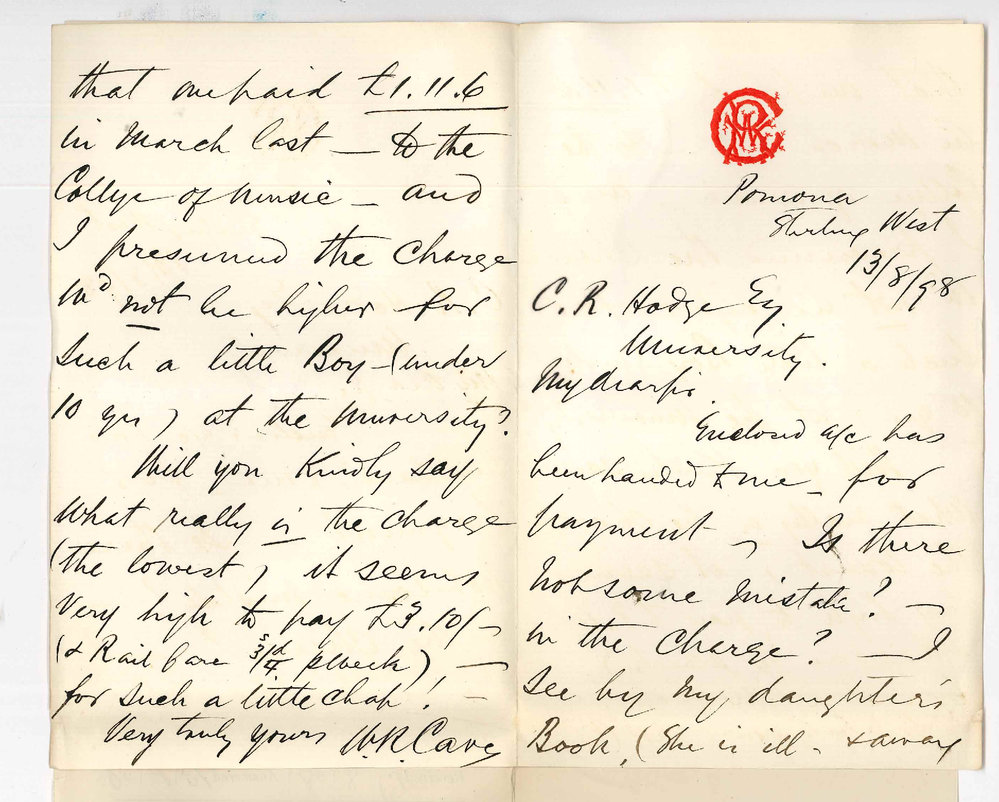 Pomona
Stirling West
13/8/98
C. R. Hodge Esq
University.
My dear sir.
Enclosed a/c has
been handed to me – for
payment – Is there
not some mistake? –
in the charge? – I
see by my daughter's
Book, (She is ill – & away
that one paid £1.11.6
in March last – to the
College of Music – and
I presumed the charge
wd not be higher for
such a little Boy – (under
10 yrs) at the University?
Will you Kindly say
what really is the charge
(the lowest) it seems
very high to pay £3.10/–
(& Rail fare pr week) –
for such a little chap! –
Very truly yours W.R. Cave